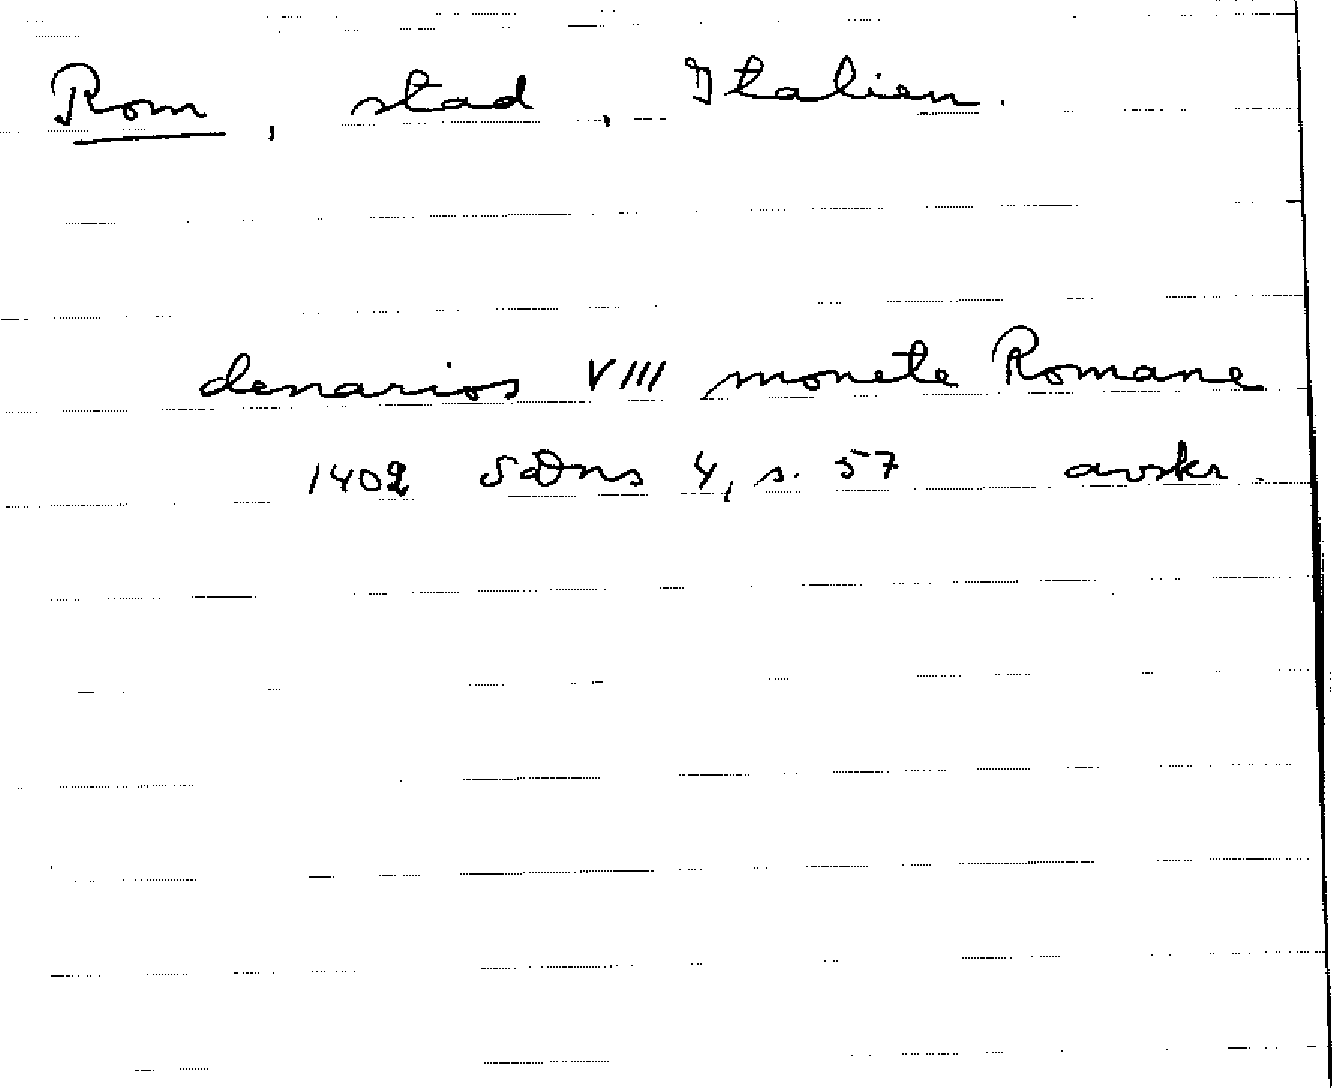 Rom, stad, Italien.
denarios VIII monete Romane
1402 SDns 4, s. 57 avskr.